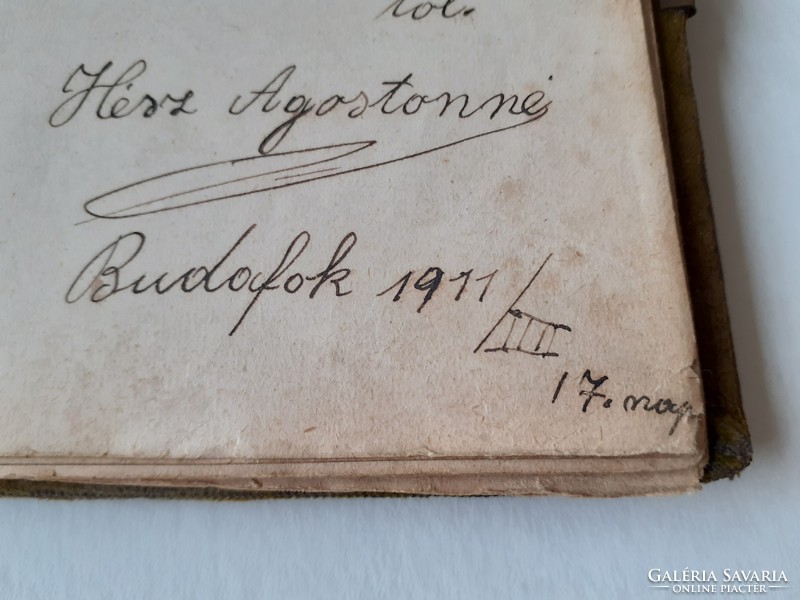 tól.
Hérz Agostonné
Budafok 1911/III
17. nap.
GALÉRIA SAVARIA
ONLINE PIACTÉR